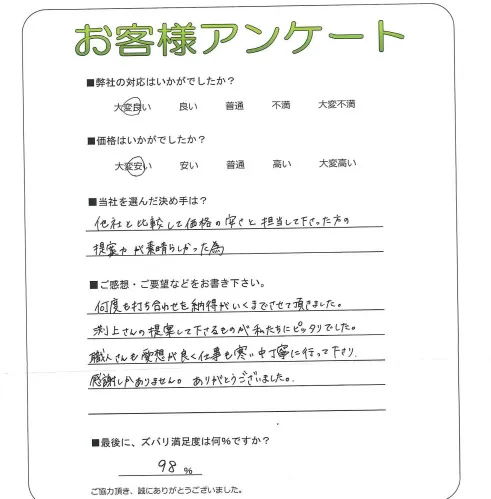 お客様アンケート
■弊社の対応はいかがでしたか?
大変良い 良い 普通 不満 大変不満
■価格はいかがでしたか?
大変安い 安い 普通 高い 大変高い
■当社を選んだ決め手は?
他社と比較して価格の安さと担当して下さった方の
提案力が素晴らしかった為
■ご感想・ご要望などをお書き下さい。
何度も打ち合わせを納得がいくまでさせて頂きました。
渕上さんの提案して下さるものが私たちにピッタリでした。
職人さんも愛想が良く仕事も寒い中丁寧に行って下さり、
感謝しかありません。ありがとうございました。
■最後に、ズバリ満足度は何%ですか?
98 %
ご協力頂き、誠にありがとうございました。